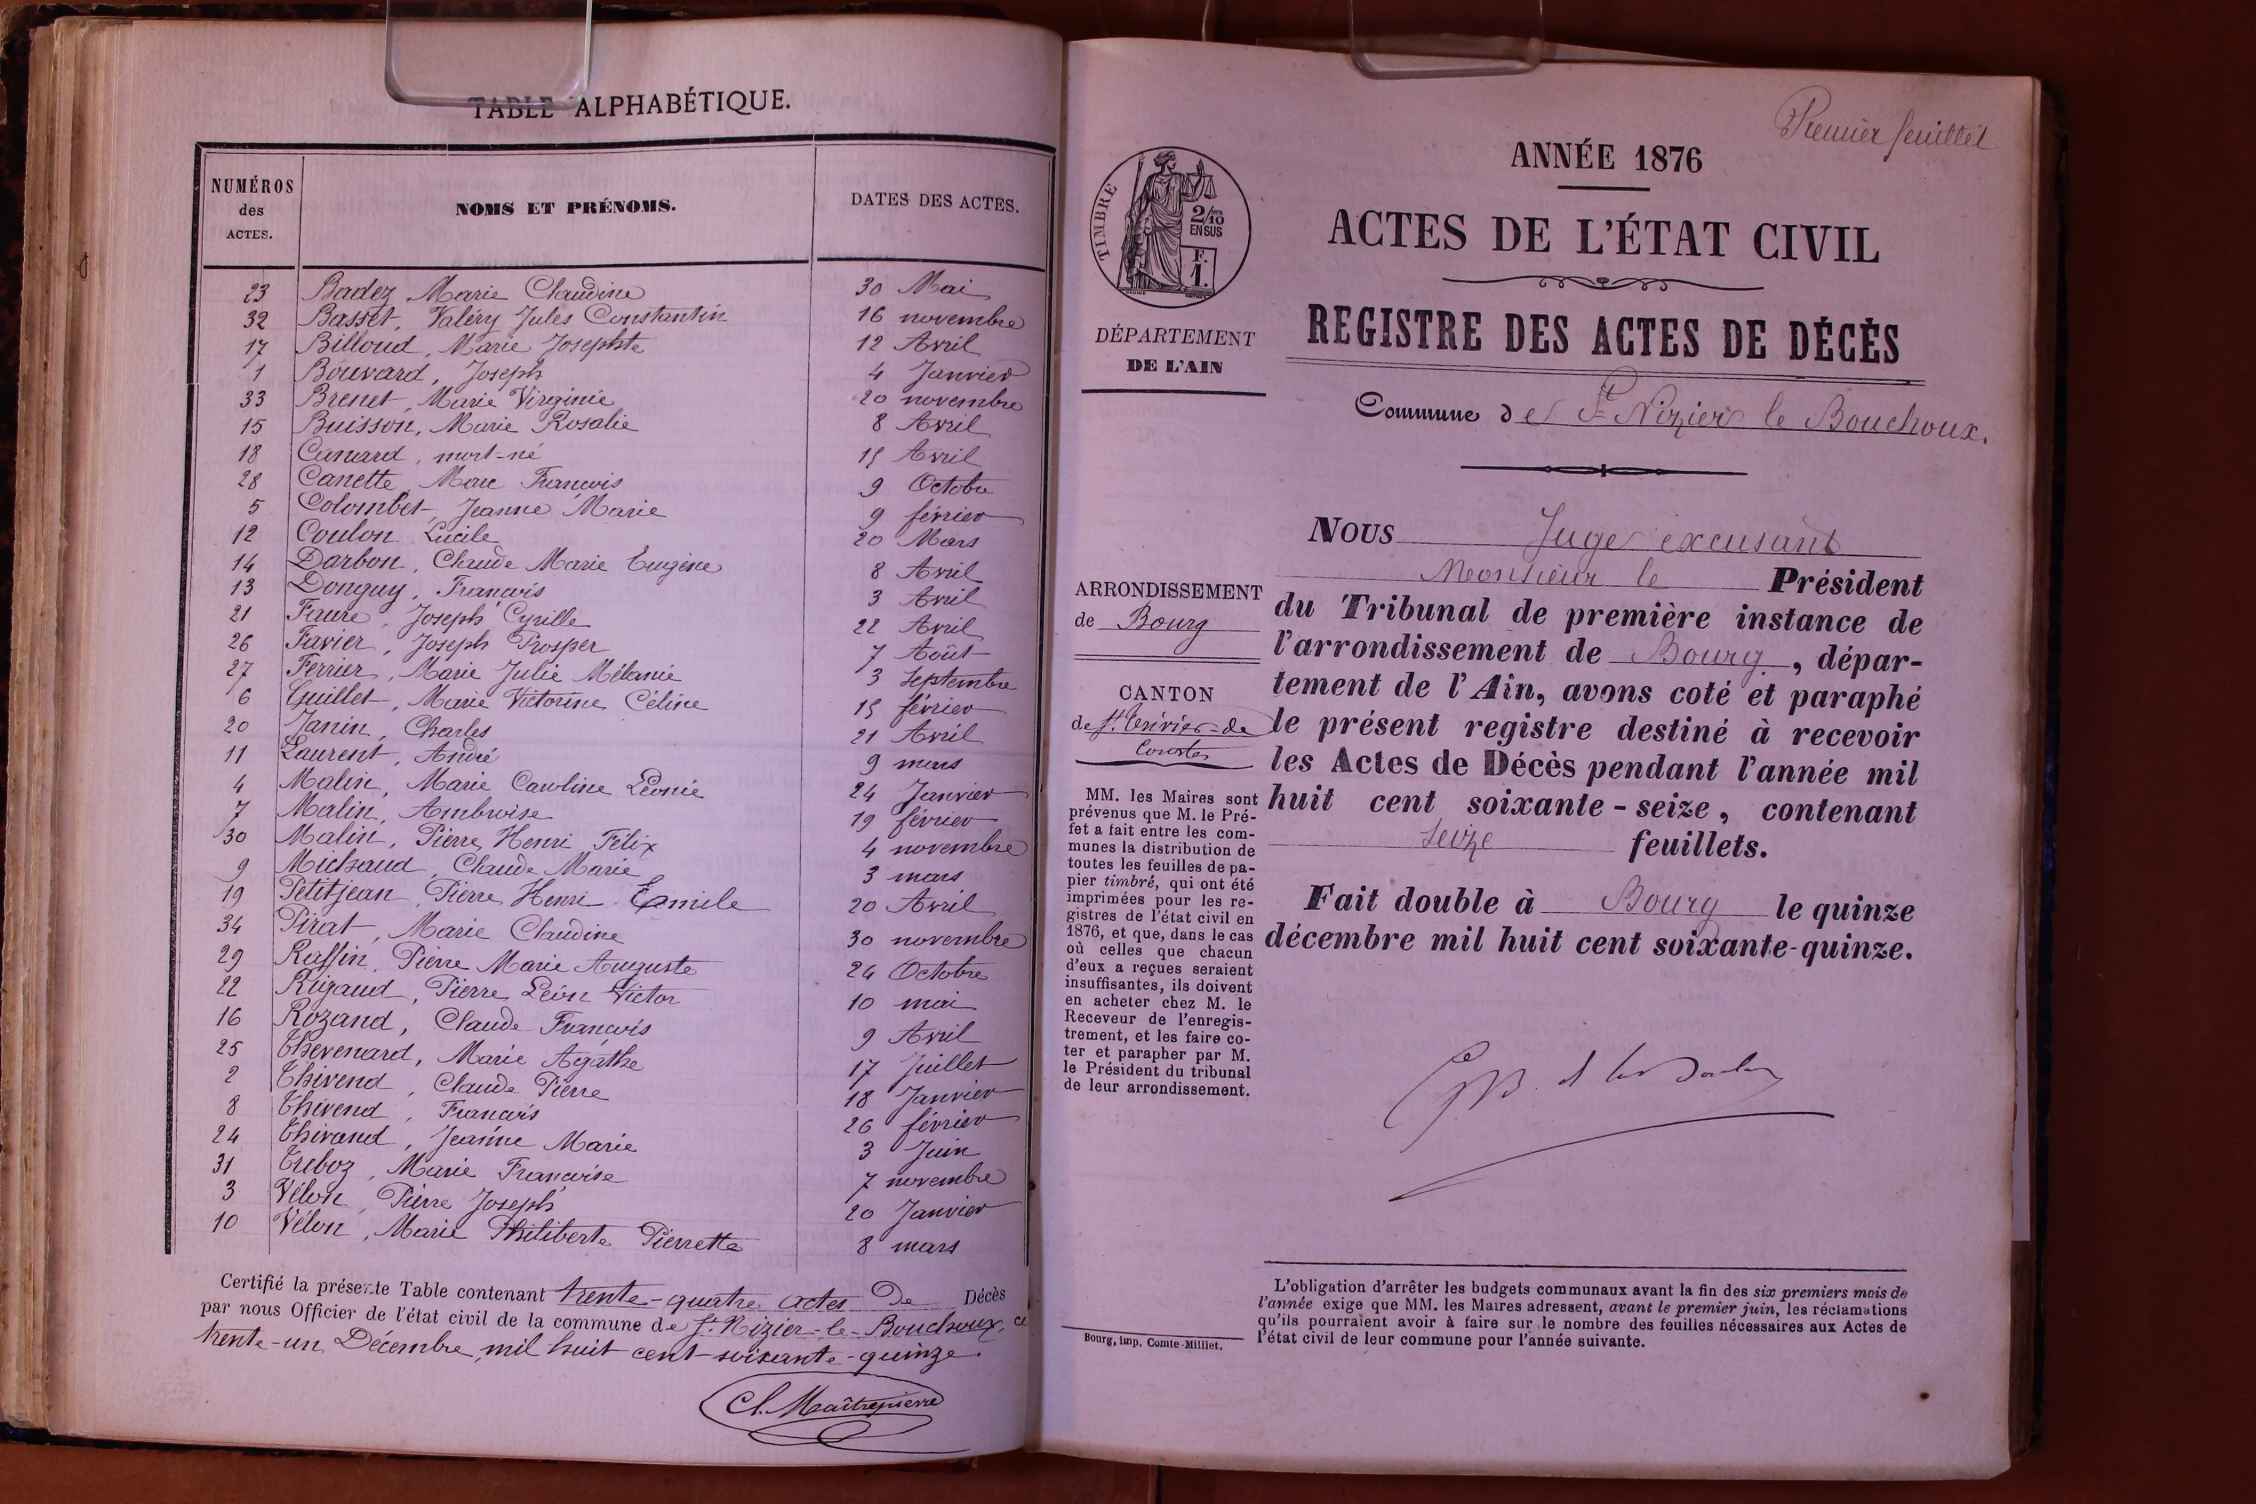 TABLE ALPHABÉTIQUE.
NUMÉROS des ACTES. NOMS ET PRÉNOMS. DATES DES ACTES.
23 Badez Marie Claudine 30 Mai
32 Basset, Valéry Jules Constantin 16 novembre
17 Billoud, Marie Josephte 12 Avril
1 Bouvard, Joseph 4 Janvier
33 Brenet, Marie Virginie 20 novembre
15 Buisson, Marie Rosalie 8 Avril
18 Canard, mort-né 15 Avril
28 Canette, Marc François 9 Octobre
5 Colombet, Jeanne Marie 9 février
12 Coulon Lucile 20 Mars
14 Darbon, Claude Marie Eugène 8 Avril
13 Donguy, François 3 Avril
21 Faure, Joseph Cyrille 22 Avril
26 Favier, Joseph Prosper 7 Août
27 Ferrier, Marie Julie Mélanie 3 Septembre
6 Guillet, Marie Victorine Céline 15 février
20 Janin, Charles 21 Avril
11 Laurent, André 9 mars
4 Malin, Marie Caroline Léonie 24 Janvier
7 Malin, Ambroise 19 février
30 Malin, Pierre Henri Félix 4 novembre
9 Michaud, Claude Marie 3 mars
19 Petitjean, Pierre Henri Emile 20 Avril
34 Pirat, Marie Claudine 30 novembre
29 Raffin, Pierre Marie Auguste 24 Octobre
22 Rigaud, Pierre Léon Victor 10 mai
16 Rozand, Claude François 9 Avril
25 Thevenard, Marie Agathe 17 Juillet
2 Thivend, Claude Pierre 18 Janvier
8 Thivend, François 26 février
24 Thivand, Jeanne Marie 3 Juin
31 Tuboz, Marie Françoise 7 novembre
3 Vélon, Pierre Joseph 20 Janvier
10 Vélon, Marie Philiberte Pierrette 8 mars
Certifié la présente Table contenant trente-quatre actes de Décès
par nous Officier de l'état civil de la commune de St. Nizier-le-Bouchoux, ce
trente-un Décembre, mil huit cent soixante-quinze.
Cl. Maîtrepierre
Premier feuillet
TIMBRE
2/10
EN SUS
F.
1.
DÉPARTEMENT
DE L'AIN
ANNÉE 1876
ACTES DE L'ÉTAT CIVIL
REGISTRE DES ACTES DE DÉCÈS
Commune de St Nizier le Bouchoux.
ARRONDISSEMENT
de Bourg
CANTON
de St. Trivier-de
Courtes
MM. les Maires sont
prévenus que M. le Pré-
fet a fait entre les com-
munes la distribution de
toutes les feuilles de pa-
pier timbré, qui ont été
imprimées pour les re-
gistres de l'état civil en
1876, et que, dans le cas
où celles que chacun
d'eux a reçues seraient
insuffisantes, ils doivent
en acheter chez M. le
Receveur de l'enregis-
trement, et les faire co-
ter et parapher par M.
le Président du tribunal
de leur arrondissement.
Bourg, imp. Comte-Milliet.
NOUS Juge excusant
Monsieur le Président
du Tribunal de première instance de
l'arrondissement de Bourg, dépar-
tement de l'Ain, avons coté et paraphé
le présent registre destiné à recevoir
les Actes de Décès pendant l'année mil
huit cent soixante-seize, contenant
seize feuillets.
Fait double à Bourg le quinze
décembre mil huit cent soixante-quinze.
L'obligation d'arrêter les budgets communaux avant la fin des six premiers mois de
l'année exige que MM. les Maires adressent, avant le premier juin, les réclamations
qu'ils pourraient avoir à faire sur le nombre des feuilles nécessaires aux Actes de
l'état civil de leur commune pour l'année suivante.